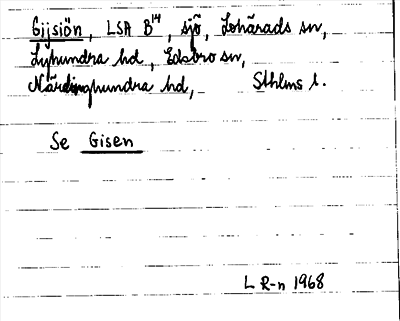 Gijsiön, LSA B¹⁴, sjö, Lohärads sn,
Lyhundra hd, Edsbro sn,
Närdinghundra hd, Sthlms l.
Se Gisen
L R-n 1968